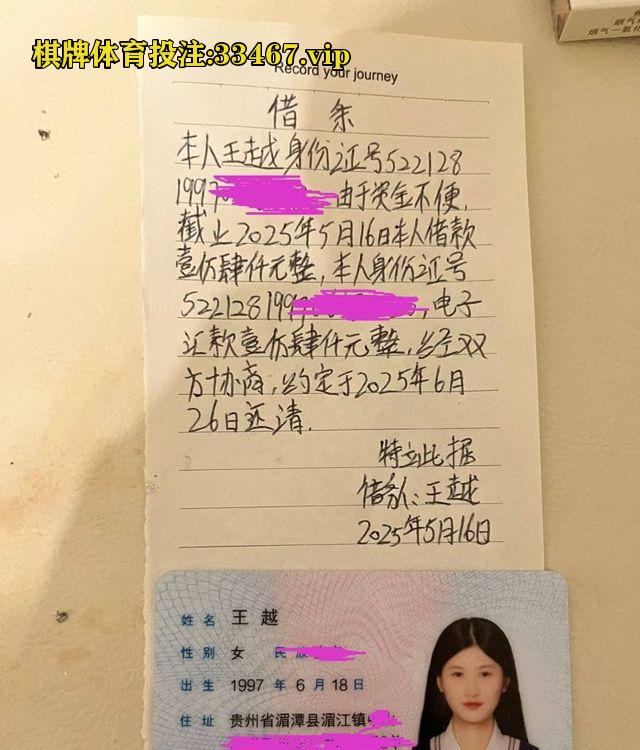 棋牌体育投注:33467.vip
Record your journey
借条
本人王越身份证号522128
1997 由于资金不便,
截止2025年5月16日本人借款
壹仟肆仟元整,本人身份证号
522128199 ,电子
汇款壹仟肆仟元整,经双
方协商,约定于2025年6月
26日还清.
特立此据
借款人:王越
2025年5月16日
姓名 王越
性别 女 民族
出生 1997 年 6 月 18 日
住址 贵州省湄潭县湄江镇